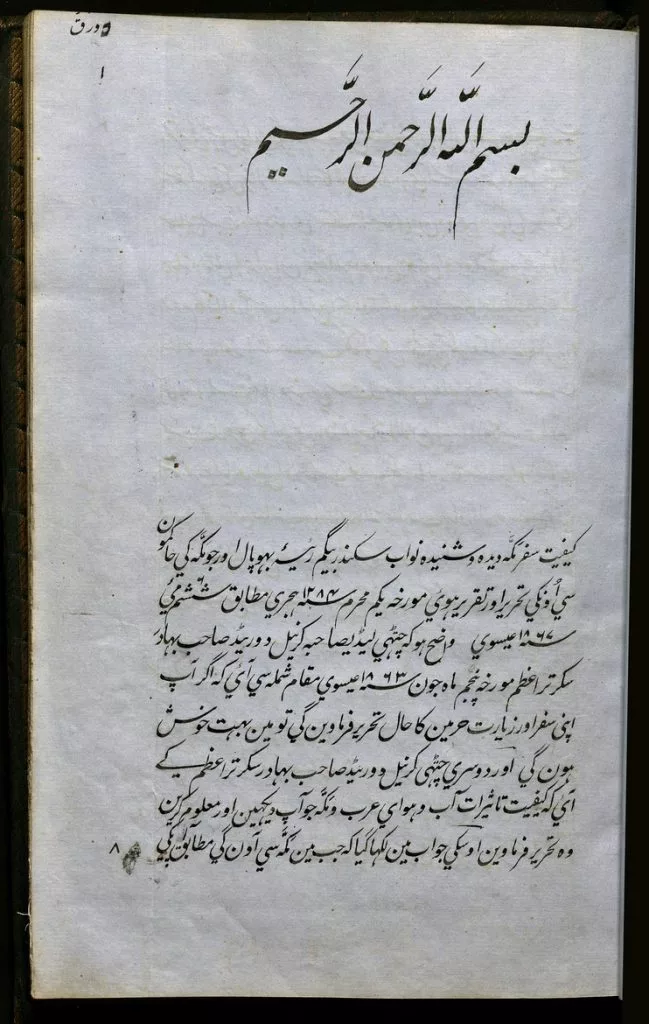 ورق
۱
بسم اللّٰه الرَّحمن الرَّحیم
کیفیت سفر مکّه دیده و شنیده نواب سکندر بیگم رئیسۂ بهوپال اور جو مکّه کي حاکمون
سي اُونکي تحریر اور تقریر هوئي مورخه یکم محرم سنه ۱۲۸۴ هجري مطابق ششم مئي
سنه ۱۸۶۷ عیسوي واضح هو که چتهي لیڈي صاحبه کرنیل دورینڈ صاحب بهادر
سکرتر اعظم مورخه پنجم ماه جون سنه ۱۸۶۳ عیسوي مقام شمله سي آئي که اگر آپ
اپني سفر اور زیارت حرمین کا حال تحریر فرماوین گي تو مین بهت خوش
هون گي اور دوسري چتهي کرنیل دورینڈ صاحب بهادر سکرتر اعظم کے
آئي که کیفیت تاثیرات آب و هواي عرب و مکّه جو آپ دیکهین اور معلوم کرین
وه تحریر فرماوین اوسکي جواب مین لکها گیا که جب مین مکّه سي آون گي مطابق آپکي
۸